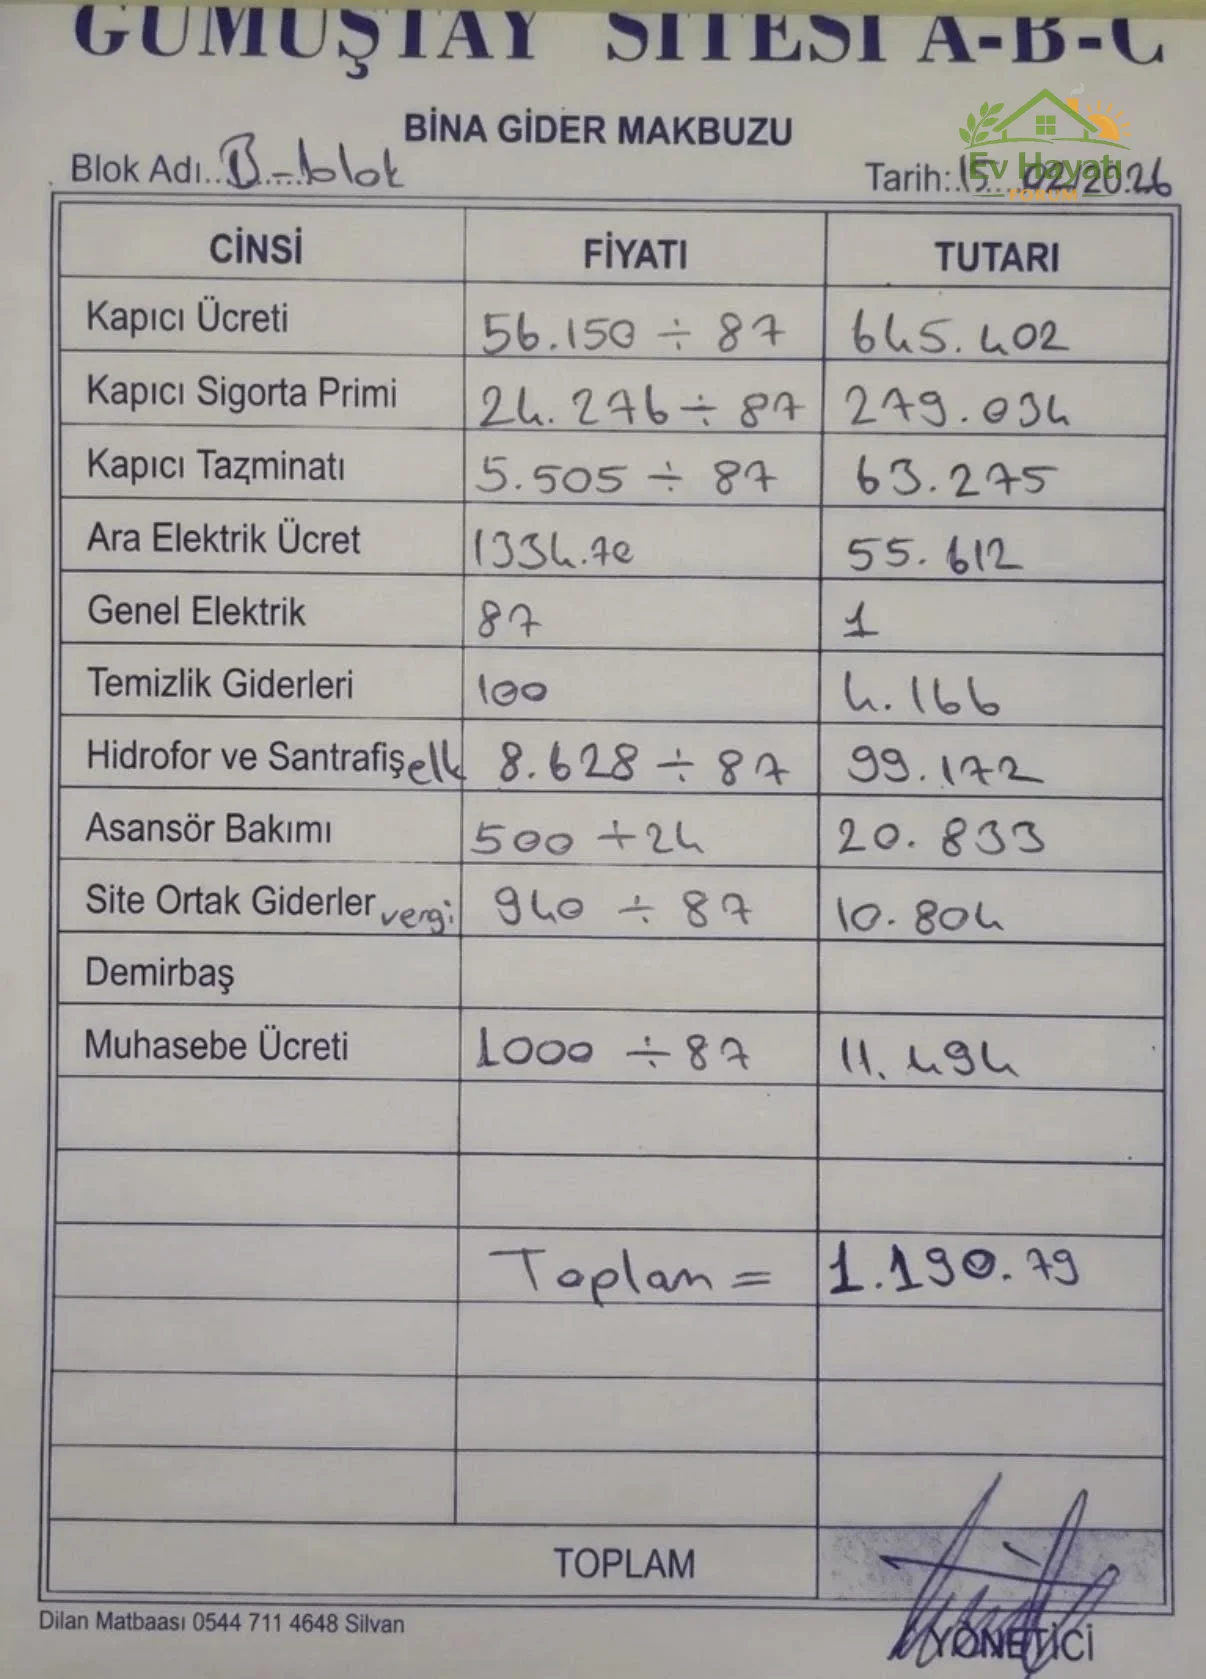 GÜMÜŞTAY SİTESİ A-B-C
BİNA GİDER MAKBUZU
Ev Hayatı
FORUM
Blok Adı..B-blok
Tarih:.15..02/2026
CİNSİ FİYATI TUTARI
Kapıcı Ücreti 56.150 ÷ 87 645.402
Kapıcı Sigorta Primi 24.276 ÷ 87 279.034
Kapıcı Tazminatı 5.505 ÷ 87 63.275
Ara Elektrik Ücret 1334.70 55.612
Genel Elektrik 87 1
Temizlik Giderleri 100 4.166
Hidrofor ve Santrafiş elk 8.628 ÷ 87 99.172
Asansör Bakımı 500 ÷ 24 20.833
Site Ortak Giderler vergi 940 ÷ 87 10.804
Demirbaş
Muhasebe Ücreti 1000 ÷ 87 11.494
Toplam = 1.190.79
TOPLAM
Dilan Matbaası 0544 711 4648 Silvan
YÖNETİCİ